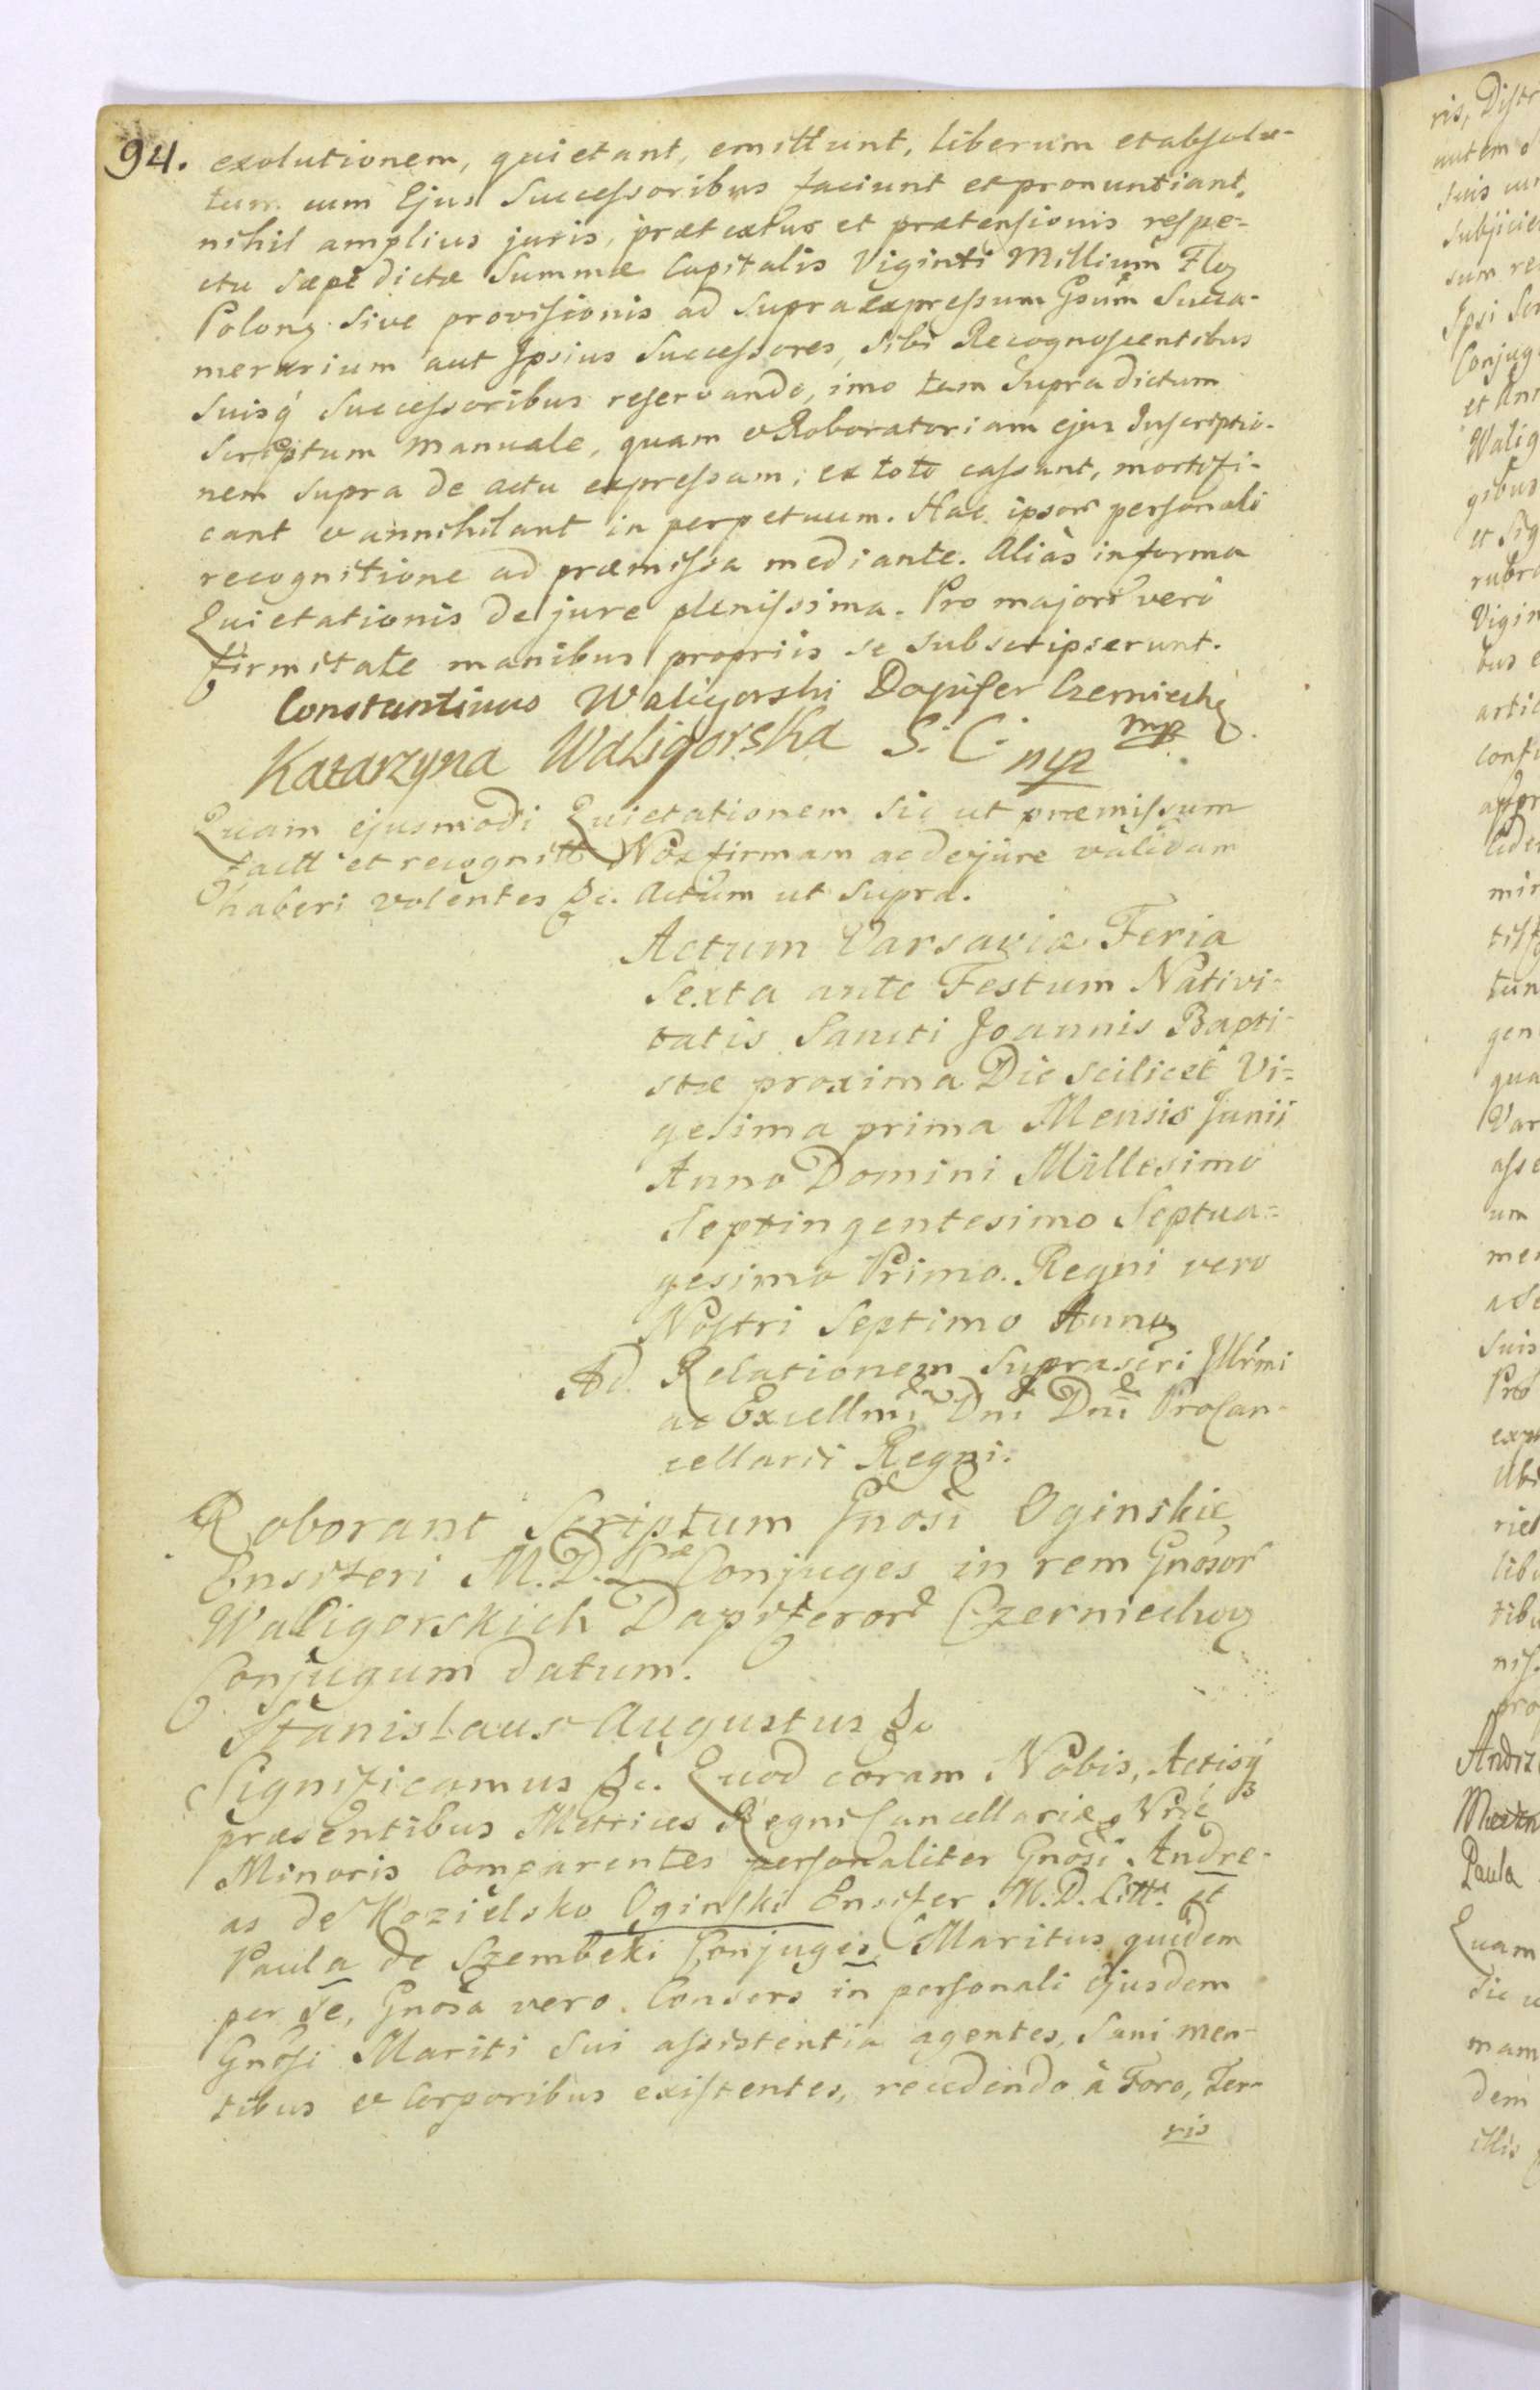 94. exolutionem, quietant, emittunt, liberum et absolu-
tum cum Ejus Successoribus faciunt et pronuntiant,
nihil amplius juris, prætextus et prætensionis respe-
ctu sæpe dictæ Summæ Capitalis Viginti Millium Flor
Polon. sive provisionis ad supra expressum Gsum Succa-
merarium aut Ipsius Successores, sibi Recognoscentibus
suisq́ Successoribus reservando, imo tam supra dictum
Scriptum manuale, quam et Roboratoriam ejus Inscriptio-
nem supra de actu expressam, ex toto cassant, mortifi-
cant et annihilant in perpetuum. Hac ipsor personali
recognitione ad præmissa mediante. Aliàs in forma
Quietationis de jure plenissima. Pro majori verò
firmitate manibus propriis se subscripserunt.
Constantinus Waligorski Dapifer Czerniech
mp
Katarzyna Waligorska S: C: mp
Quam ejusmodi Quietationem sic ut præmissum
factt et recognitt Nos firmam ac de jure validam
haberi volentes &c. Actum ut supra.
Actum Varsaviæ Feria
Sexta ante Festum Nativi-
tatis Sancti Joannis Bapti-
stæ proxima Die scilicet Vi=
gesima prima Mensis Junii
Anno Domini Millesimo
Septingentesimo Septua=
gesimo Primo. Regni vero
Nostri Septimo Anno
Ad Relationem suprascri Illrmi
ac Excellmi Dni Dni Procan-
cellarii Regni.
Roborant Scriptum Gnosi Oginskie
Ensiferi M. D. Læ Conjuges in rem Gnosor
Waligorskich Dapiferor Czerniechov
Conjugum datum.
Stanislaus Augustus &c
Significamus &c. Quod coram Nobis, Actisq́
præsentibus Metrices Regni Cancellariæ Nræ
Minoris Comparentes personaliter Gnosi Andre-
as de Kozielsko Oginski Ensifer M. D. Litt. et
Paula de Szembeki Conjuges, Maritus quidem
per se, Gnosa vero Consors in personali ejusdem
Gnosi Mariti sui assistentia agentes, sani men-
tibus et Corporibus existentes, recedendo à Foro, Ter-
ris